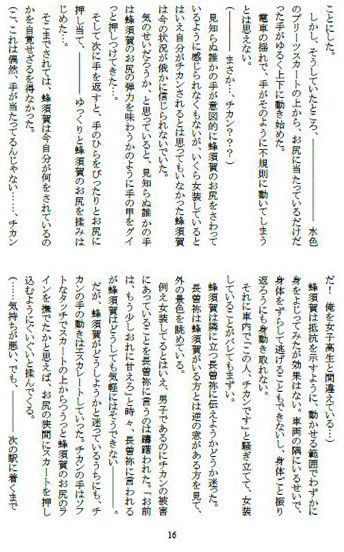 ことにした。
しかし、そうしていたところ、――――水色
のプリーツスカートの上から、お尻に当たっているだけだ
った手がゆるく上下に動き始めた。
電車の揺れで、手がそのように不規則に動いてしまう
とは思えない。
(――まさか…、チカン???)
見知らぬ誰かの手が意図的に蜂須賀のお尻をさわって
いるように感じられなくもないが、いくら女装していると
はいえ自分がチカンされるとは思ってもいなかった蜂須賀
は今の状況が俄かに信じられないでいた。
気のせいだろうか、と思っていると、見知らぬ誰かの手
は蜂須賀のお尻の弾力を味わうかのように手の甲をグイ
っと押しつけてきた…。
そして次に手を返すと、手のひらをぴったりとお尻に
押し当て、――――ゆっくりと蜂須賀のお尻を揉みは
じめた…。
そこまでされては、蜂須賀は今自分が何をされているの
かを自覚せざるを得なかった。
(こ、これは偶然、手が当たってるんじゃない……、チカン
だ!俺を女子高生と間違えている…)
蜂須賀は抵抗を示すように、動かせる範囲でわずかに
身をよじってみたが効果はない。車両の隅にいるせいで、
身体をずらして逃げることもできないし、身体ごと振り
返ろうにも身動き取れない。
それに車内で「この人、チカンです」と騒ぎ立てて、女装
していることがバレてもまずい。
蜂須賀は隣に立つ長曽祢に伝えようかどうか迷った。
長曽祢は蜂須賀がいる方とは逆の窓がある方を見て、
外の景色を眺めている。
例え女装してるとはいえ、男子であるのにチカンの被害
にあっていることを長曽祢に言うのは躊躇われた。「お前
は、もう少しおれに甘えろ」と時々、長曽祢に言われる
が蜂須賀はどうしても気軽にはそうできない――。
だが、蜂須賀がどうしようかと迷っているうちにも、チ
カンの手の動きはエスカレートしていった。チカンの手はソフ
トなタッチでスカートの上からつうっと蜂須賀のお尻のラ
インを撫でたかと思えば、お尻の狭間にスカートを押し
込むようにぐいぐいと揉んでくる。
(……気持ちが悪い、でも、――――次の駅に着くまで
16